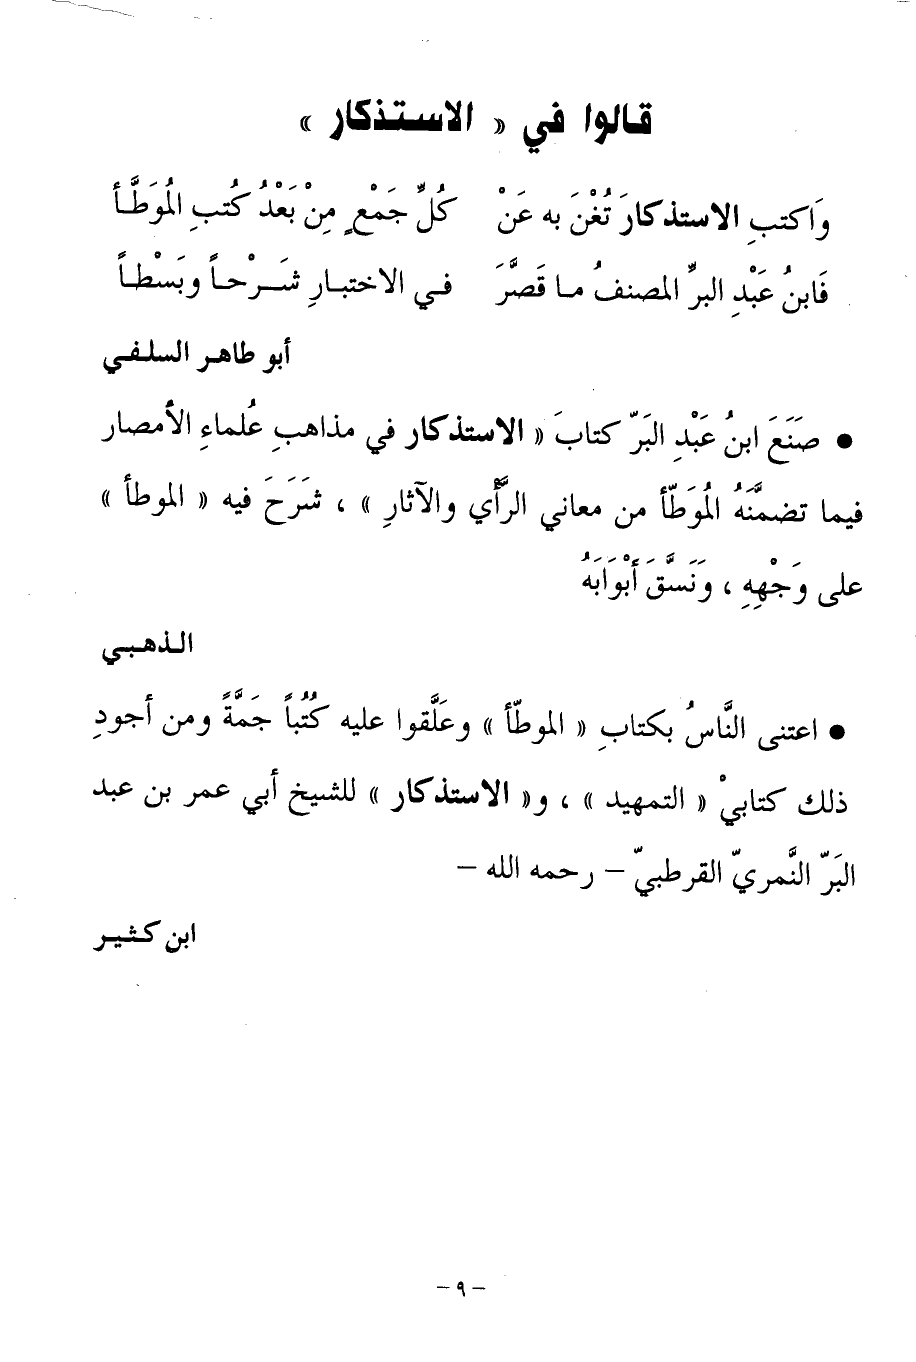 قالوا في « الاستذكار »
وَاكتبِ الاستذكارَ تُغْنَ به عَنْ كُلِّ جَمْعٍ مِنْ بَعْدُ كُتبِ المُوَطَّأ
فَابنُ عَبْدِ البرِّ المصنفُ ما قَصَّرَ في الاختبارِ شَرْحاً وبَسْطاً
أبو طاهر السلفي
• صَنَعَ ابنُ عَبْدِ البَرّ كتابَ « الاستذكار في مذاهبِ عُلماءِ الأمصار
فيما تضمنَّهُ المُوَطّأ من معاني الرَّأي والآثارِ » ، شَرَحَ فيه « الموطأ »
على وَجْهِهِ ، ونَسَّقَ أبْوَابَهُ
الذهبي
• اعتنى النَّاسُ بكتابِ « الموطّأ » وعَلَّقوا عليه كُتُباً جَمَّةً ومن أجودِ
ذلك كتابيْ « التمهيد » ، و« الاستذكار » للشيخ أبي عمر بن عبد
البَرّ النَّمريّ القرطبيّ – رحمه الله –
ابن كثير
– ٩ –